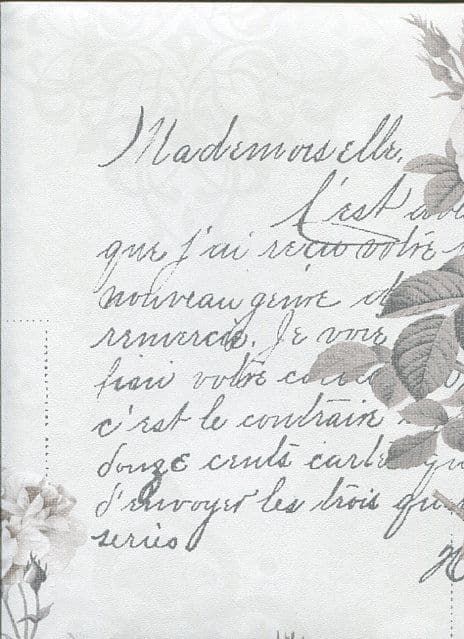 Mademoiselle,
C'est
que j'ai reçu votre
nouveau genre d
remercie. Je
bien votre
c'est le contraire
douze cents carte
d'envoyer les trois
series.